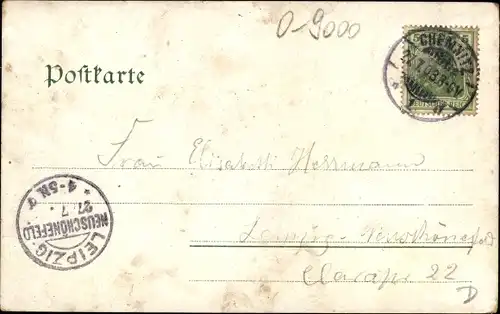 O-9000
Postkarte
CHEMNITZ
DEUTSCHES REICH
Frau Elisabeth Herrmann
Leipzig-Neuschönefeld
Clarastr 22
D
LEIPZIG-
NEUSCHÖNEFELD
27.7
4-5N